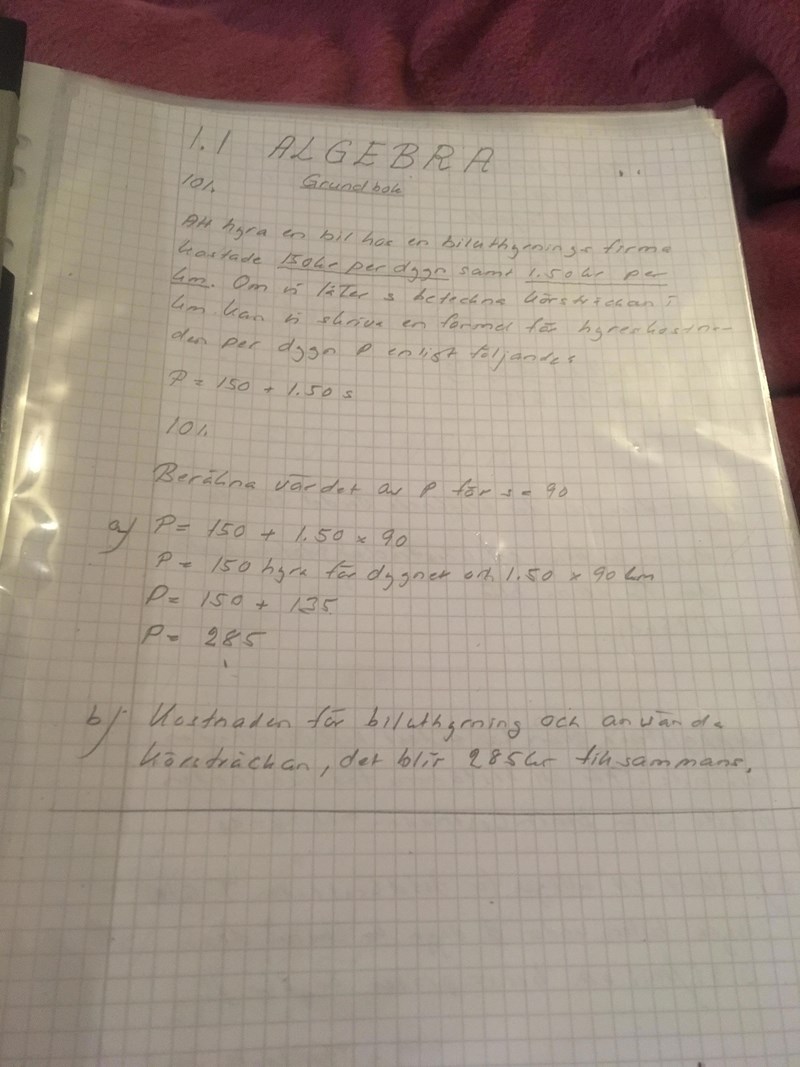 1.1 ALGEBRA
101. Grundbok
Att hyra en bil hos en biluthyrnings firma
kostade 150kr per dygn samt 1.50kr per
km. Om vi låter s beteckna körsträckan i
km kan vi skriva en formel för hyreskostna-
den per dygn P enligt följandes
P = 150 + 1.50 s
101.
Beräkna värdet av P för s = 90
a) P = 150 + 1.50 × 90
P = 150 hyra för dygnet och 1.50 × 90 km
P = 150 + 135
P = 285
b) Kostnaden för biluthyrning och använda
körsträckan, det blir 285kr tillsammans.